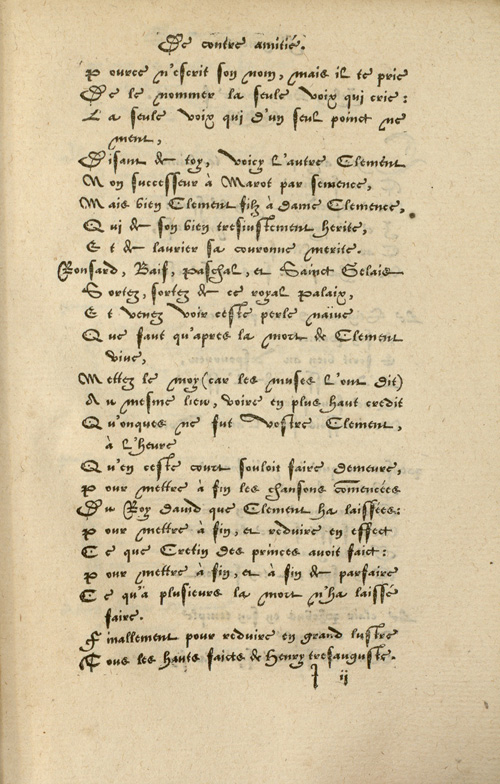 De contre amitié.
P ource n'escrit son nom, mais il te prie
De le nommer la seule voix qui crie:
L a seule voix qui d'un seul poinct ne
ment,
Disant de toy, voicy l'autre Clement
N on successeur à Marot par semence,
M ais bien Clement filz à dame Clemence,
Q ui de son bien tresiustement herite,
E t de laurier sa couronne merite.
Ronsard, Baif, Paschal, et Sainct Gelais
Sortez, sortez de ce royal palaix,
E t venez voir ceste perle naiue
Q ue faut qu'apres la mort de Clement
viue,
Mettez le moy (car les muses l'ont dit)
A u mesme lieu, voire en plus haut credit
Q u'onques ne fut vostre Clement,
à l'heure
Q u'en ceste court souloit faire demeure,
P our mettre à fin les chansons comēcées
Du Roy david que Clement ha laissées:
P our mettre à fin, et reduire en effect
C e que Cretin des princes avoit faict:
P our mettre à fin, et à fin de parfaire
C e qu'à plusieurs la mort n'ha laissé
faire.
F inallement pour reduire en grand lustre
Tous les hauts faicts de Henry tresauguste.
ij